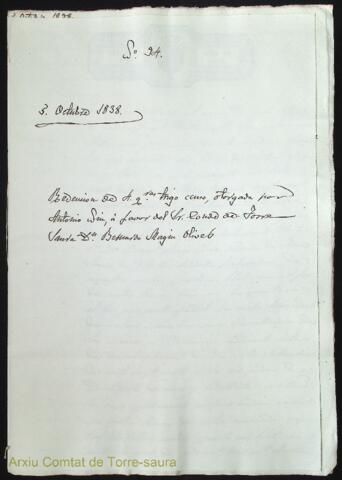 Octubre 1838.
Nº 24.
3. Octubre 1838.
Redencion de 4. q.nes trigo censo, otorgada por
Antonio á favor del Sr. Conde de Torre
Saura Dn Bernardo Magin Olives
Arxiu Comtat de Torre-saura